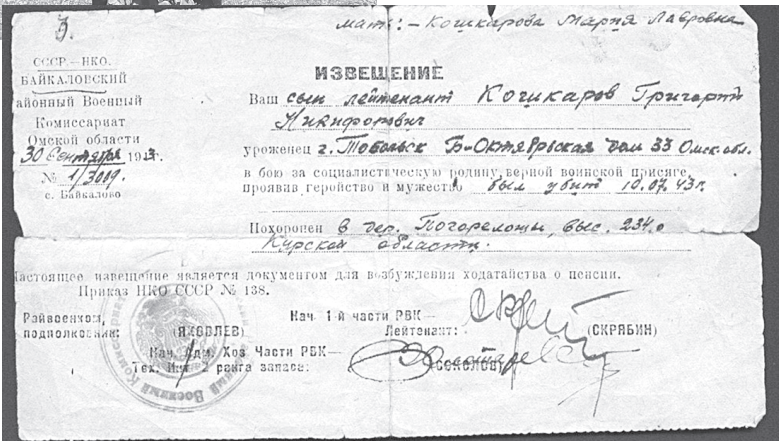 3.
мать:- Кошкарова Мария Лавровна
СССР.-НКО.
БАЙКАЛОВСКИЙ
айонный Военный
Комиссариат
Омской области
30 Сентября 1943.
№ 1/3009.
с. Байкалово
ИЗВЕЩЕНИЕ
Ваш сын лейтенант Кошкаров Григорий
Никифорович
уроженец г. Тобольск Б-Октябрьская дом 33 Омск. обл.
в бою за социалистическую родину, верной воинской присяге,
проявив геройство и мужество был убит 10.07.43 г.
Похоронен в дер. Погореловцы, выс. 234.0
Курской области.
Настоящее извещение является документом для возбуждения ходатайства о пенсии.
Приказ НКО СССР № 138.
Райвоенком,
подполковник:
(ЯКОВЛЕВ)
Нач 1-й части РВК—
Лейтенант:
(СКРЯБИН)
Нач. Адм. Хоз Части РВК—
Тех. Инт 2 ранга запаса:
(СОКОЛОВ)